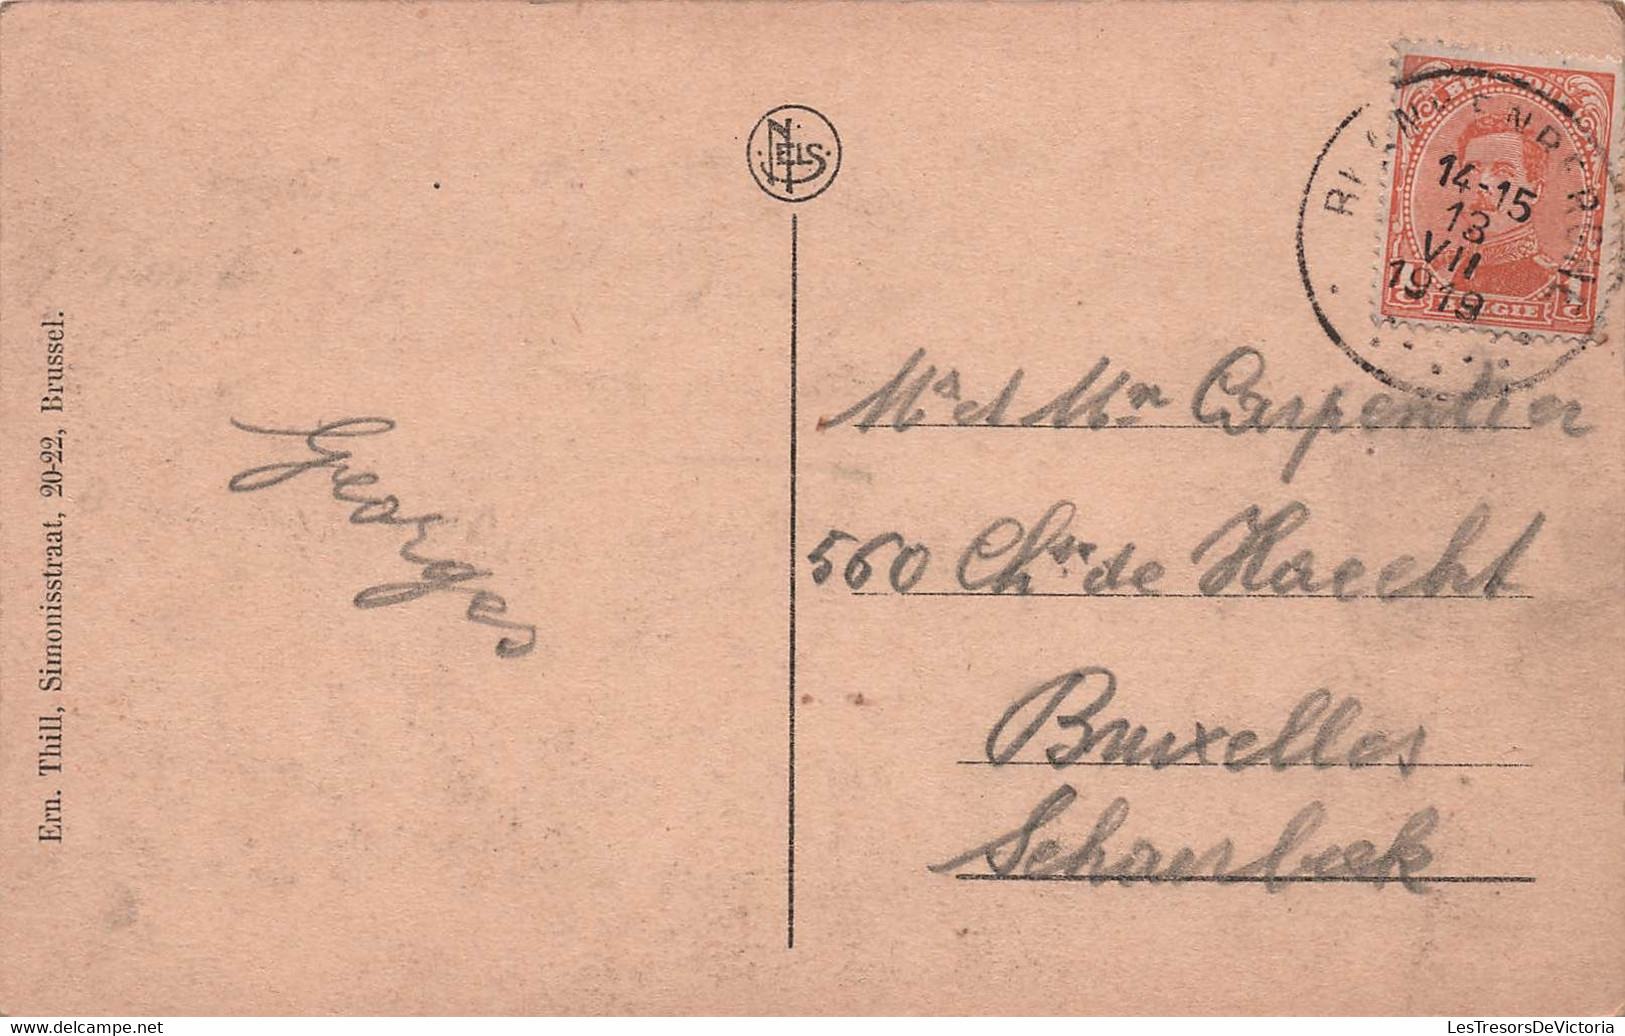 Ern. Thill, Simonisstraat, 20-22, Brussel.
NELS
Georges
BLANKENBERGHE
14-15
13
VII
1919
BELGIE
Mr et Mme Carpentier
560 Chée de Haecht
Bruxelles
Schaerbeek
LesTresorsDeVictoria